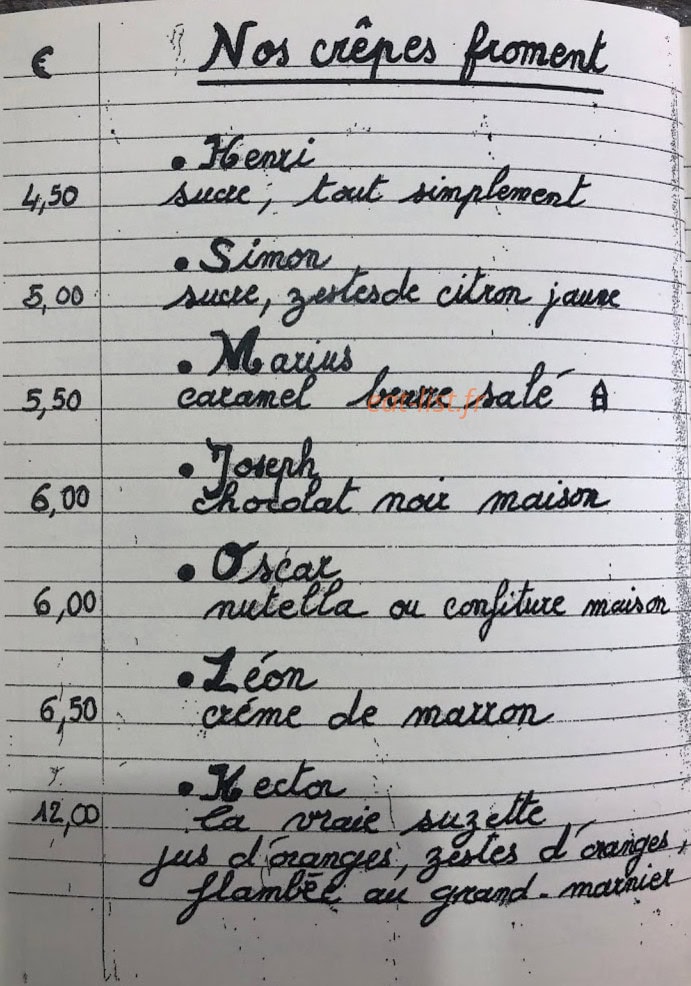 € Nos crêpes froment
• Henri
4,50 sucre, tout simplement
• Simon
5,00 sucre, zestes de citron jaune
• Marius
5,50 caramel beurre salé
eat-list.fr
• Joseph
6,00 chocolat noir maison
• Oscar
6,00 nutella ou confiture maison
• Léon
6,50 créme de marron
• Hector
12,00 la vraie suzette
jus d'oranges, zestes d'oranges,
flambée au grand-marnier